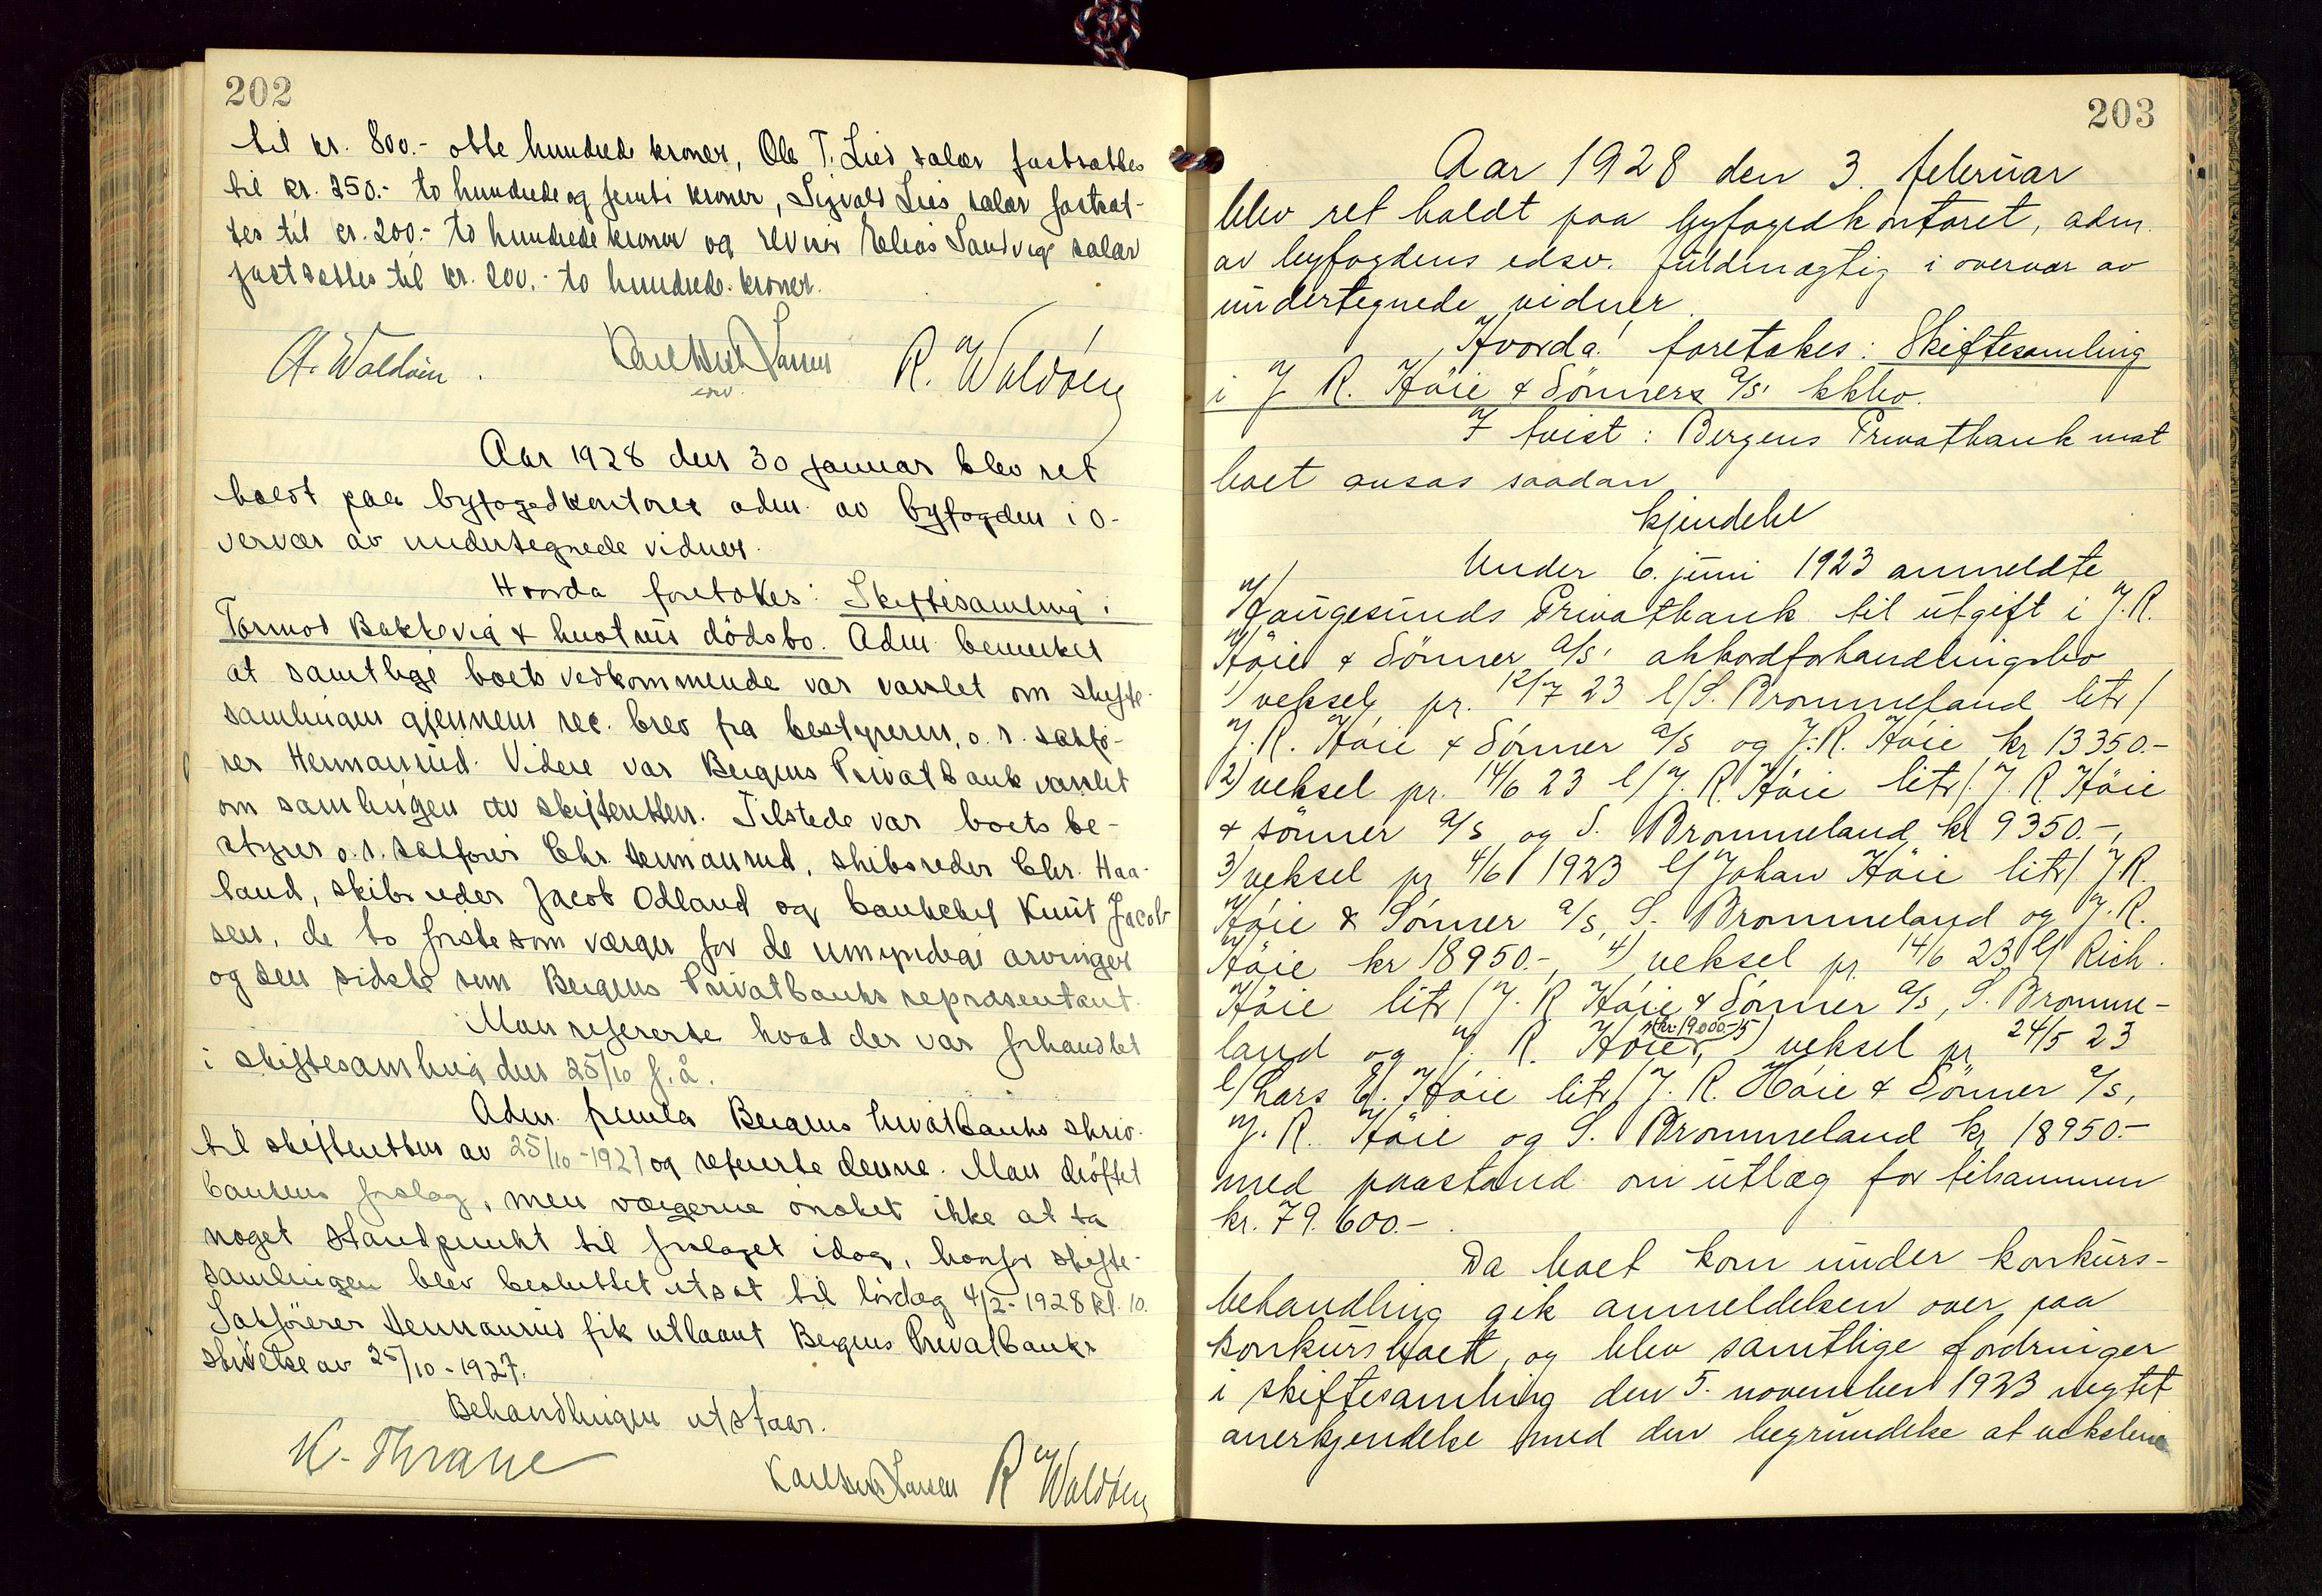 202
til kr. 800.- otte hundrede kroner, Ole T. Lies salær fastsattes
til kr. 250.- to hundrede og femti kroner, Sigvald Lies salær fastsat-
tes til kr. 200.- to hundrede kroner og revisor Elias Sandvigs salær
fastsattes til kr. 200.- to hundrede kroner.
A. Waldøen. Larsen R. Waldøen
Aar 1928 den 30 januar blev ret
holdt paa byfogedkontoret adm. av byfogden i o-
vervær av undertegnede vidner.
Hvorda foretokes: Skiftesamling i
Tormod Bakkevig & hustrus dödsbo. Adm. bemerket
at samtlige boets vedkommende var varslet om skifte-
samlingen gjennem rec. brev fra bestyreren, o.r. sakfø-
rer Hermanrud. Videre var Bergens Privatbank varslet
om samlingen av skifteretten. Tilstede var boets be-
styrer o.r. sakfører Chr. Hermanrud, skibsreder Chr. Haa-
land, skibsreder Jacob Odland og bankchef Knut Jacob-
sen, de to første som værger for de umyndige arvinger
og den sidste som Bergens Privatbanks repræsentant.
Man refererte hvad der var forhandlet
i skiftesamling den 25/10 f.å.
Adm. fremla Bergens Privatbanks skriv.
til skifteretten av 25/10-1927 og refererte denne. Man drøftet
bankens forslag, men værgerne ønsket ikke at ta
noget standpunkt til forslaget idag, hvorfor skifte-
samlingen blev besluttet utsat til lørdag 4/2-1928 kl. 10.
Sakfører Hermanrud fik utlaant Bergens Privatbanks
skrivelse av 25/10-1927.
Behandlingen utstaar.
K. Thrane
Larsen R Waldøen
203
Aar 1928 den 3. februar
blev ret holdt paa byfogedkontoret, adm.
av byfogdens edsv. fuldmægtig i overvær av
undertegnede vidner.
Hvorda! foretokes: Skiftesamling
i J. R. Höie & Sönners a/s' kkbo.
I tvist: Bergens Privatbank mot
boet avsas saadan
kjendelse
Under 6. juni 1923 anmeldte
Haugesunds Privatbank til utgift i J. R.
Höie & Sönner a/s' akkordforhandlingsbo
1) veksel pr. 12/7 23 l/S. Brommeland litr/
J. R. Höie & Sönner a/s og J. R. Höie kr 13350.-
2) veksel pr. 14/6 23 l/J. R. Höie litr/. J. R. Höie
& sönner a/s og S. Brommeland kr 9350.-,
3) veksel pr 4/6 1923 l/Johan Höie litr/ J R.
Höie & Sönner a/s, S. Brommeland og J. R.
Höie kr 18950.-, 4) veksel pr. 14/6 23 l/ Rich.
Höie litr/ J. R Höie & Sönner a/s, S. Bromme-
land og J. R. Höie, kr. 19.000.- 5) veksel pr 24/5 23
l/Lars E. Höie litr/ J. R. Höie & Sönner a/s,
J. R. Höie og S. Brommeland kr 18950.-
med paastand om utlæg for tilsammen
kr. 79.600.-.
Da boet kom under konkurs-
behandling gik anmeldelsen over paa
konkursboet, og blev samtlige fordringer
i skiftesamling den 5. november 1923 negtet
anerkjendelse med den begrundelse at vekslene